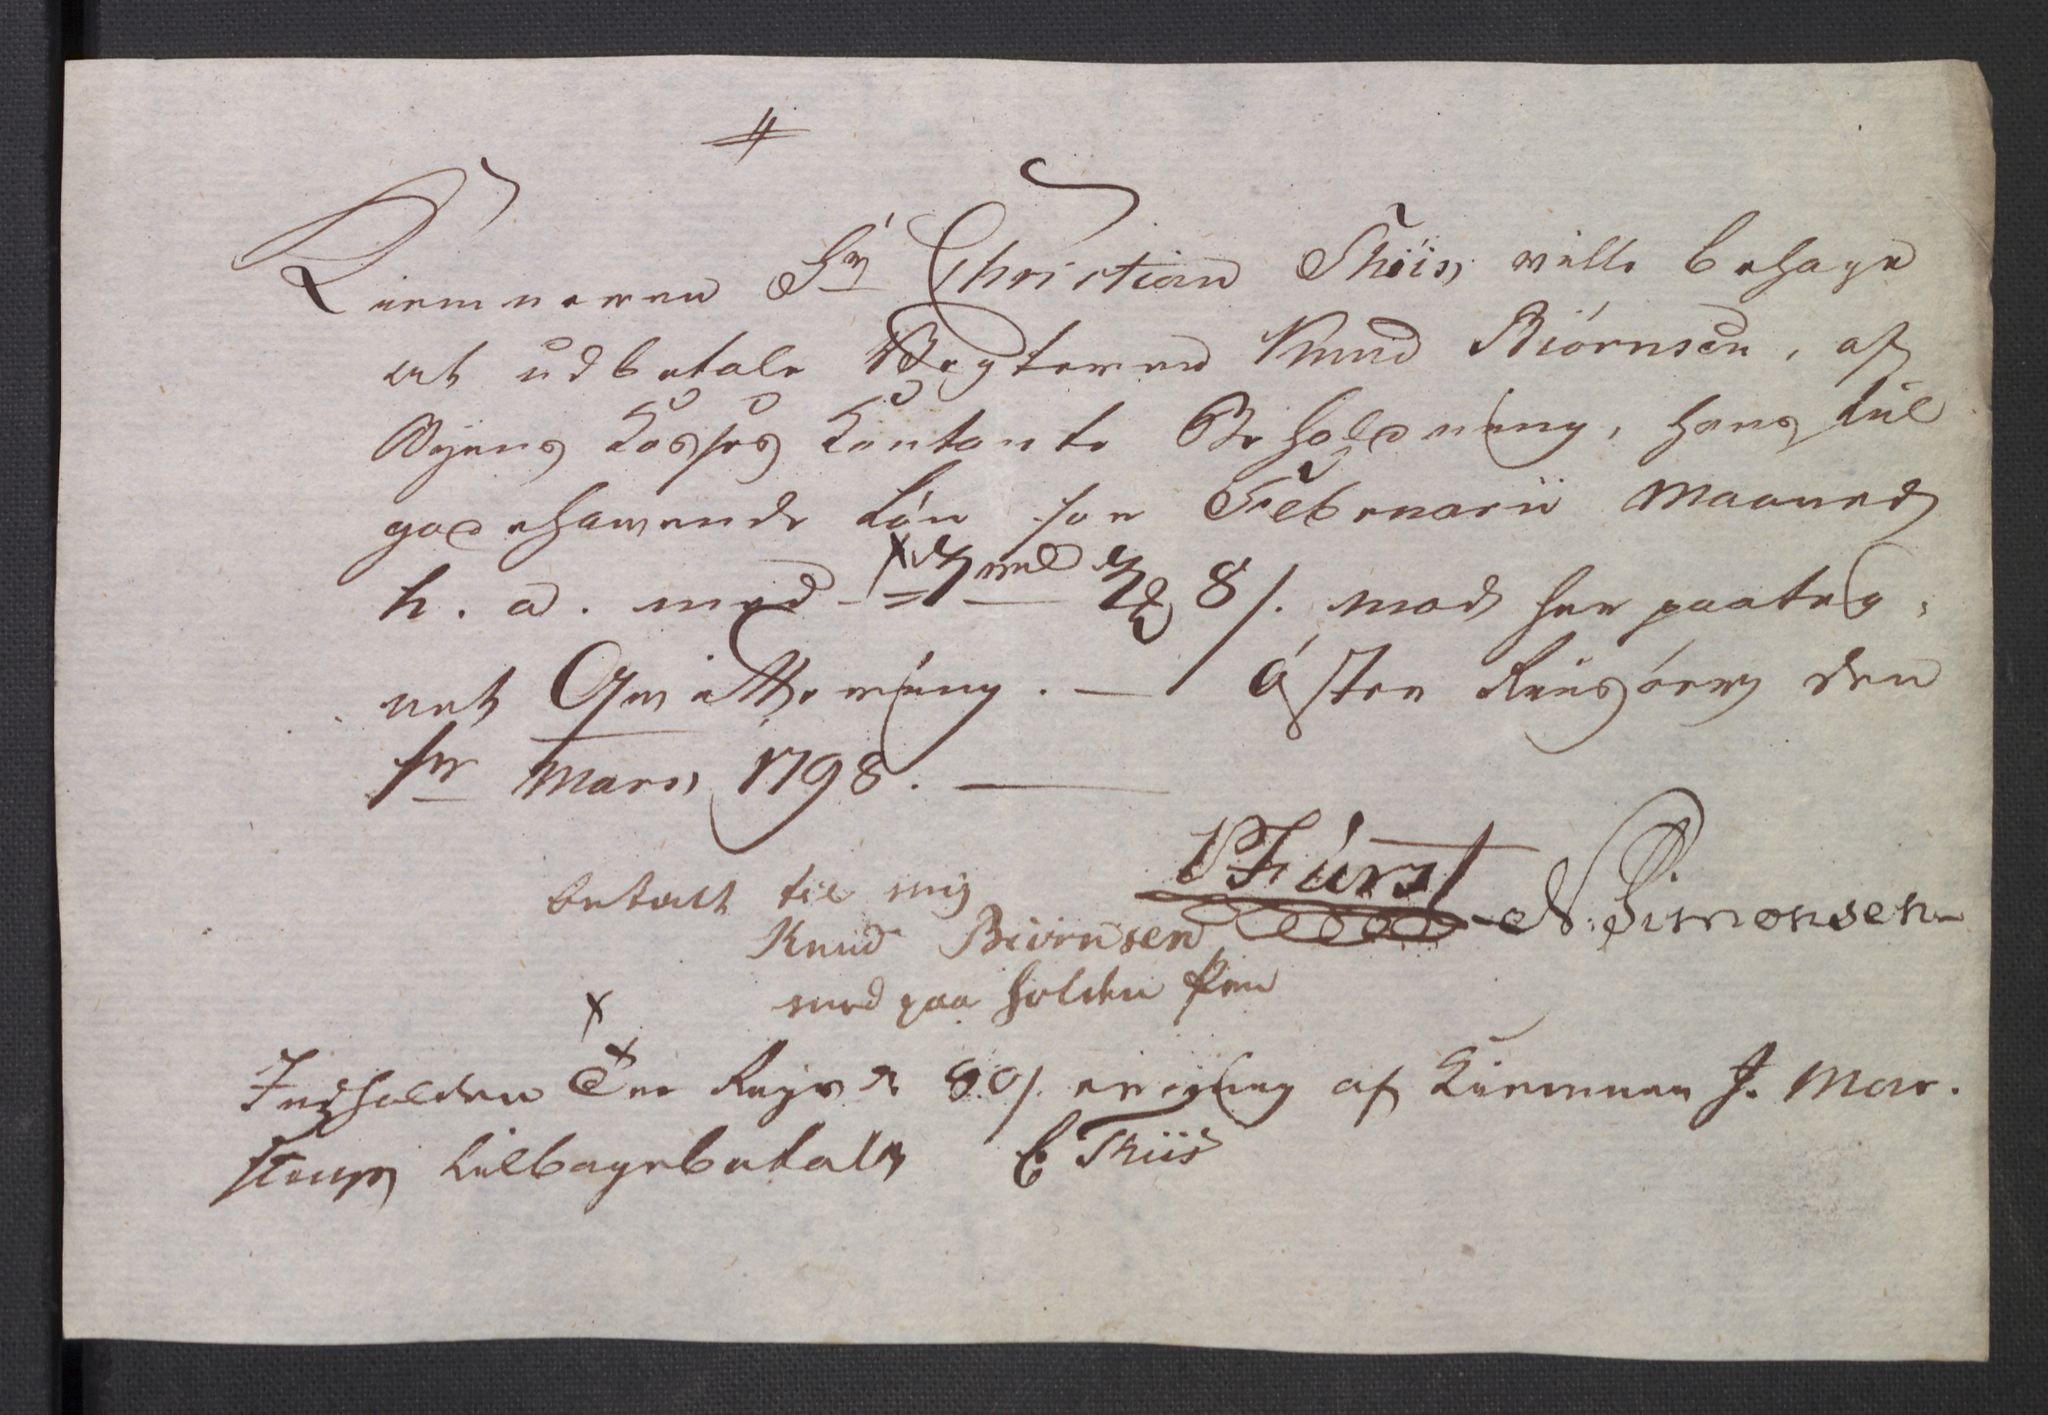 Kiemneren Hr Christian Thiis, ville behage
at udbetale Vegteren Knud Biörnsen, af
Byens Casses Contante Beholdning, hans til
godehavende Lön for Februarii Maaned
h. a. med 8 s. mod her paateg,
net Qvittering. — Öster Riisöer den
Mars, 1798. —
VFürst N. Simonsen
betalt til mig
Knud Biörnsen
med paa holden Pen
Indholden 80 s. af Kiemner J. Mar.
strup tilbagebetalt C Thiis